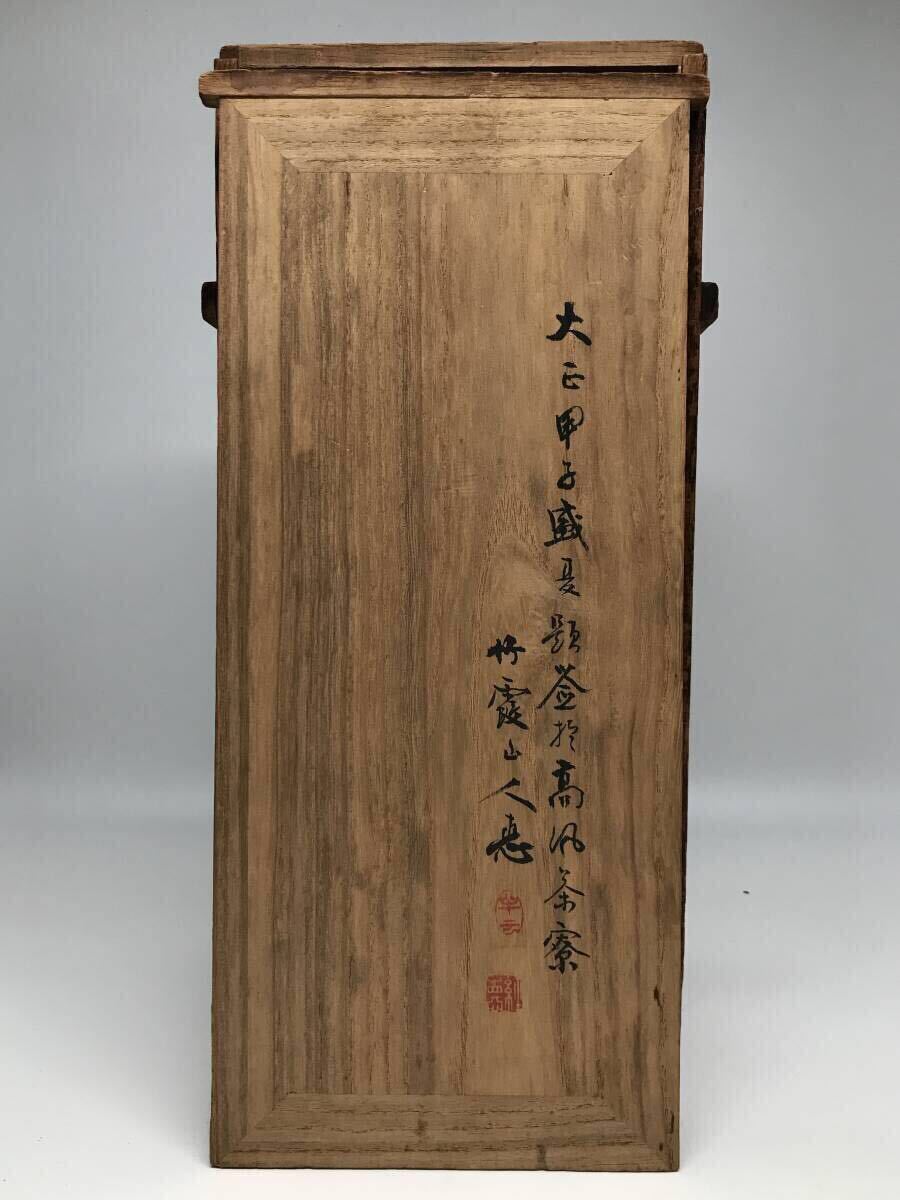 大正甲子盛夏題簽於高風茶寮
竹霞山人恵